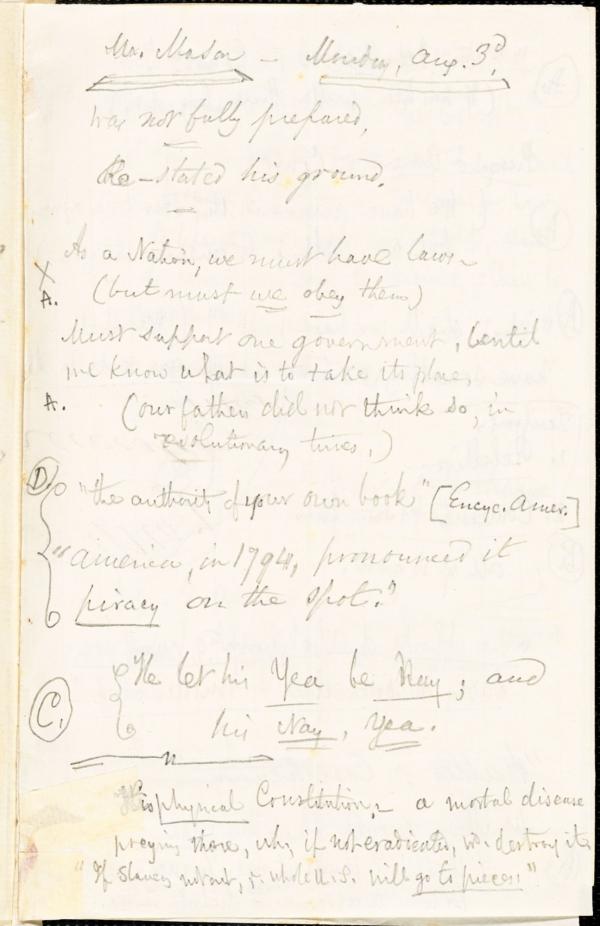 Mr. Mason – Monday, Aug. 3d,
was not fully prepared,
Re-stated his ground.
As a Nation, we must have laws –
X
A. (but must we obey them)
Must support one government, until
we know what is to take its place,
A. (our fathers did not think so, in
revolutionary times,)
D. "the authority of your own book" [Encyc. Amer.]
"America, in 1794, pronounced it
piracy on the spot."
C. "He let his Yea be Nay; and
his Nay, Yea.
His physical Constitution, – a mortal disease
preying there, wh. if not eradicated, wd. destroy it,
"If Slavery not out, ye. whole U.S. will go to pieces!"